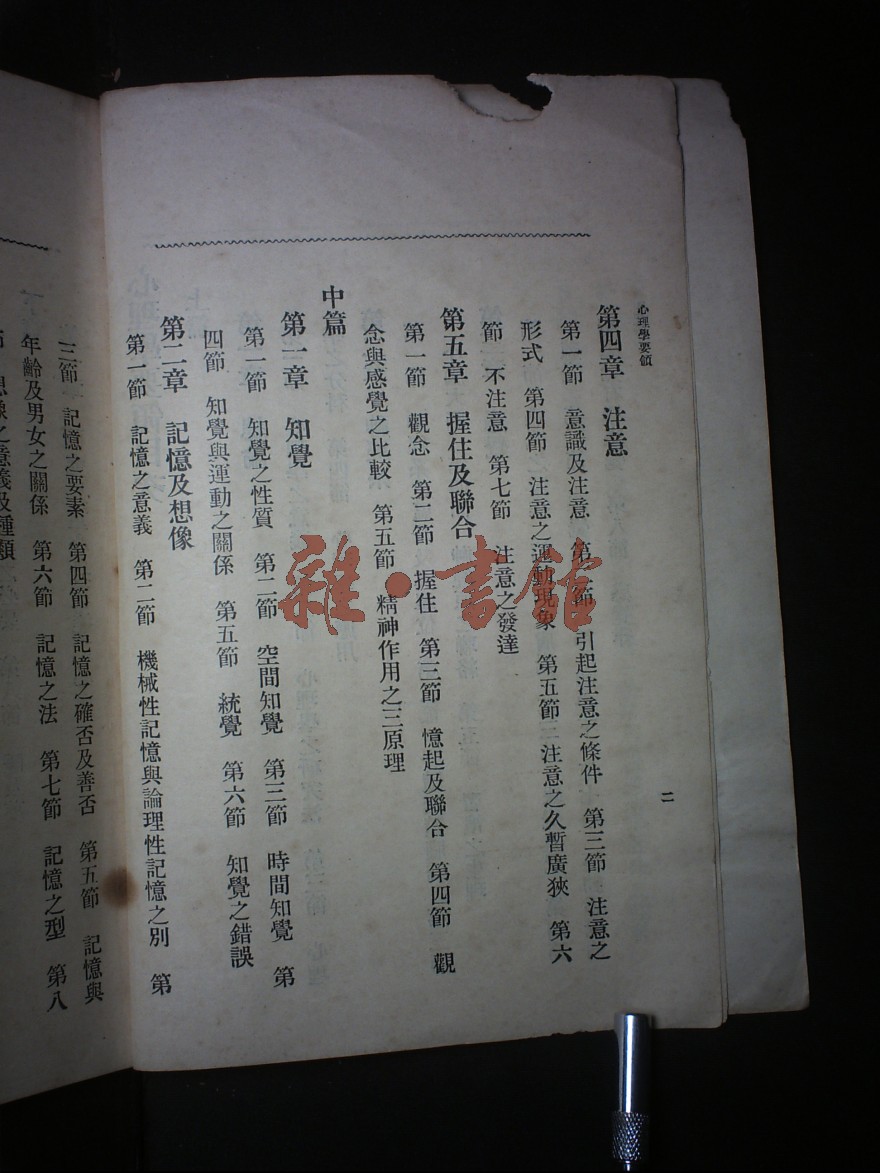 心理學要領
第四章 注意
第一節 意識及注意 第二節 引起注意之條件 第三節 注意之
形式 第四節 注意之運動現象 第五節 注意之久暫廣狹 第六
節 不注意 第七節 注意之發達
第五章 握住及聯合
第一節 觀念 第二節 握住 第三節 憶起及聯合 第四節 觀
念與感覺之比較 第五節 精神作用之三原理
中篇
第一章 知覺
第一節 知覺之性質 第二節 空間知覺 第三節 時間知覺 第
四節 知覺與運動之關係 第五節 統覺 第六節 知覺之錯誤
第二章 記憶及想像
第一節 記憶之意義 第二節 機械性記憶與論理性記憶之別 第
二
三節 記憶之要素 第四節 記憶之確否及善否 第五節 記憶與
年齡及男女之關係 第六節 記憶之法 第七節 記憶之型 第八
節 想像之意義及種類
雜·書館